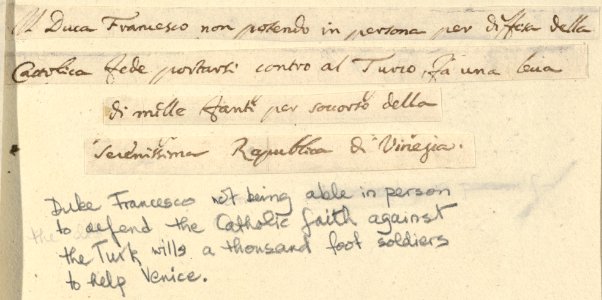 Il Duca Francesco non potendo in persona per diffesa della
Cattolica fede portarsi contro al Turco, fà una leua
di mille fanti per socorso della
Serenissima Republica di Vinegia.
Duke Francesco not being able in person
to defend the Catholic faith against
the Turk wills a thousand foot soldiers
to help Venice.